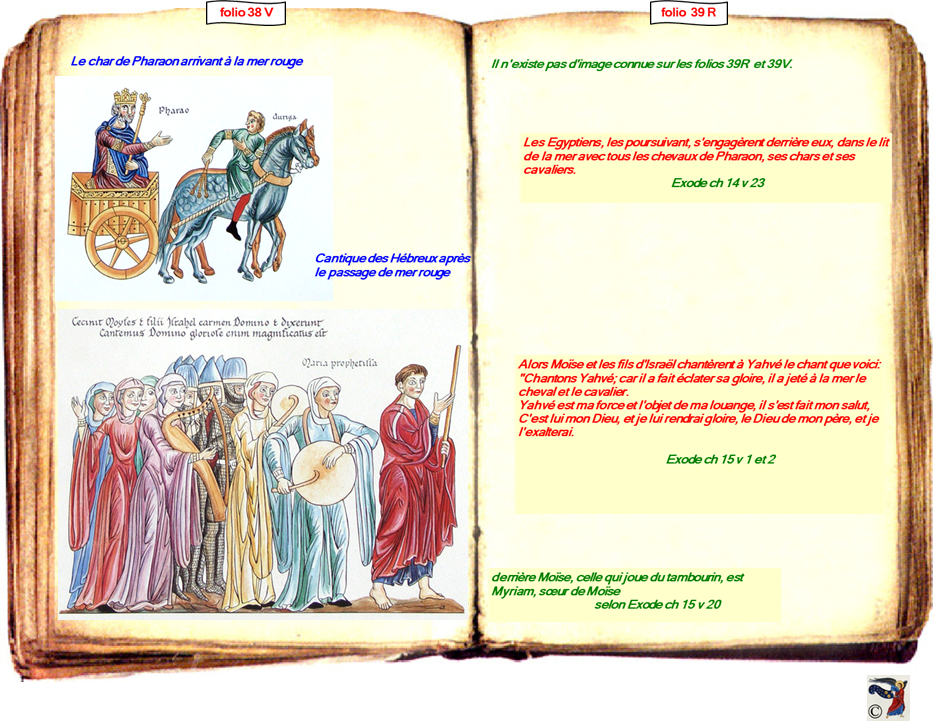 folio 38 V
Le char de Pharaon arrivant à la mer rouge
Pharao
auriga
Cantique des Hébreux après
le passage de mer rouge
Cecinit Moyses & filii Israhel carmen Domino & dixerunt
Cantemus Domino gloriose enim magnificatus est
Maria prophetissa
folio 39 R
Il n'existe pas d'image connue sur les folios 39R et 39V.
Les Egyptiens, les poursuivant, s'engagèrent derrière eux, dans le lit
de la mer avec tous les chevaux de Pharaon, ses chars et ses
cavaliers.
Exode ch 14 v 23
Alors Moïse et les fils d'Israël chantèrent à Yahvé le chant que voici:
"Chantons Yahvé; car il a fait éclater sa gloire, il a jeté à la mer le
cheval et le cavalier.
Yahvé est ma force et l'objet de ma louange, il s'est fait mon salut,
C'est lui mon Dieu, et je lui rendrai gloire, le Dieu de mon père, et je
l'exalterai.
Exode ch 15 v 1 et 2
derrière Moïse, celle qui joue du tambourin, est
Myriam, sœur de Moïse
selon Exode ch 15 v 20
©